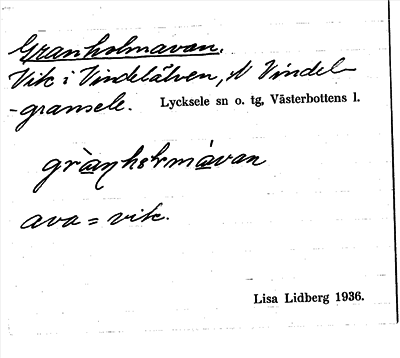 Granholmavan.
Vik i Vindelälven, N Vindel-
-gransele. Lycksele sn o. tg, Västerbottens l.
grànholmávan
ava = vik.
Lisa Lidberg 1936.